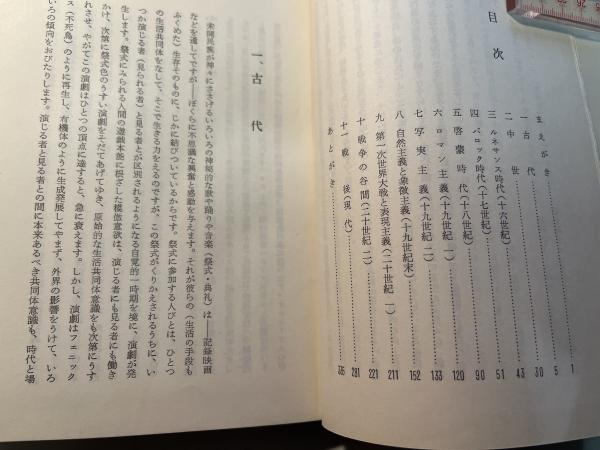 目次
まえがき 1
一 古代 5
二 中世 30
三 ルネサンス時代(十六世紀) 43
四 バロック時代(十七世紀) 51
五 啓蒙時代(十八世紀) 90
六 ロマン主義(十九世紀 一) 120
七 写実主義(十九世紀 二) 133
八 自然主義と象徴主義(十九世紀末) 152
九 第一次世界大戦と表現主義(二十世紀 一) 211
十 戦争の谷間(二十世紀 二) 221
十一 戦後(現代) 281
あとがき 335
一、古代
未開民族が神々にささげるいろいろの神秘的な歌や踊りや音楽(祭式・典礼)は――記録映画
などを通してですが――ぼくらに不思議な興奮と感動を与えます。それが彼らの(生活の手段も
ふくめた)生存そのものに、じかに結びついているからです。祭式に参加する人びとは、ひとつ
の生活共同体をなして、そこで生きる力をえるのですが、この祭式がくりかえされるうちに、い
つか演じる者(見られる者)と見る者とが区別されるようになる自覚的一時期を境に、演劇が発
生します。祭式にみられる人間の遊戯本能に根ざした模倣意欲は、演じる者にも見る者にも働き
かけ、次第に祭式色のうすい演劇をそだてあげてゆき、原始的な生活共同体意識をも次第にうす
れさせ、やがてこの演劇はひとつの頂点に達すると、急に衰えます。しかし、演劇はフェニック
ス(不死鳥)のように再生し、有機体のように生成発展してやまず、外界の影響をうけて、いろ
いろの傾向をおびたりします。演じる者と見る者との間に本来あるべき共同体意識も、時代と場